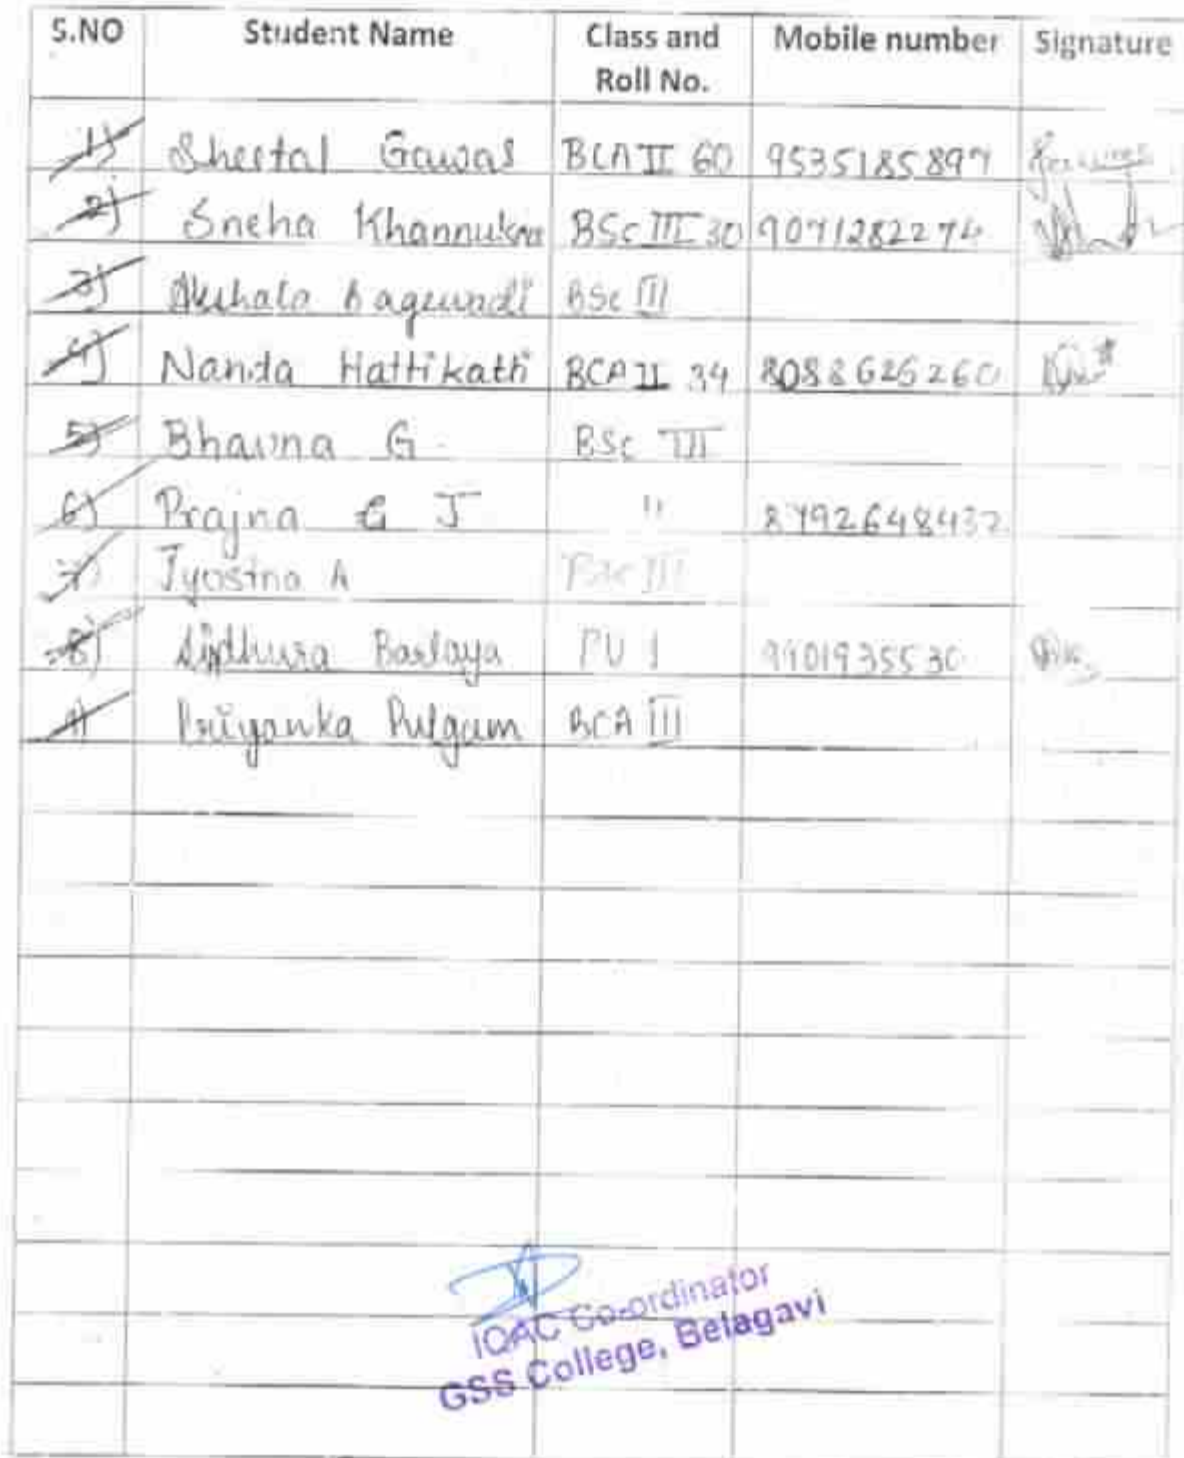 S.NO Student Name Class and Roll No. Mobile number Signature
1) Sheetal Gawas BCA II 60 9535185897
2) Sneha Khannukar BSc III 30 9071282274
3) BSc III
4) Nanda Hattikatti BCA II 34 8088626260
5) Bhavna G. BSc III
6) Prajna G J " 8792648432
7) Jyostna A BSc III
8) Barlaya PU I 9901935530
9) Priyanka Pulgam BCA III
IQAC Co-ordinator
GSS College, Belagavi